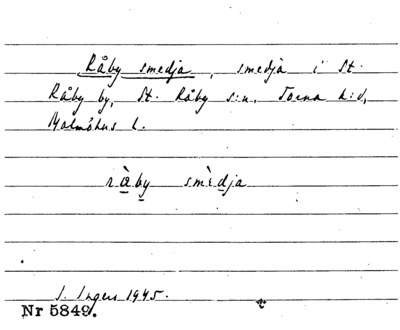 Råby smedja, smedja i St.
Råby by, St. Råby s:n, Torna h:d,
Malmöhus l.
ràby smèdja
I. Ingers 1945.
Nr 5849.